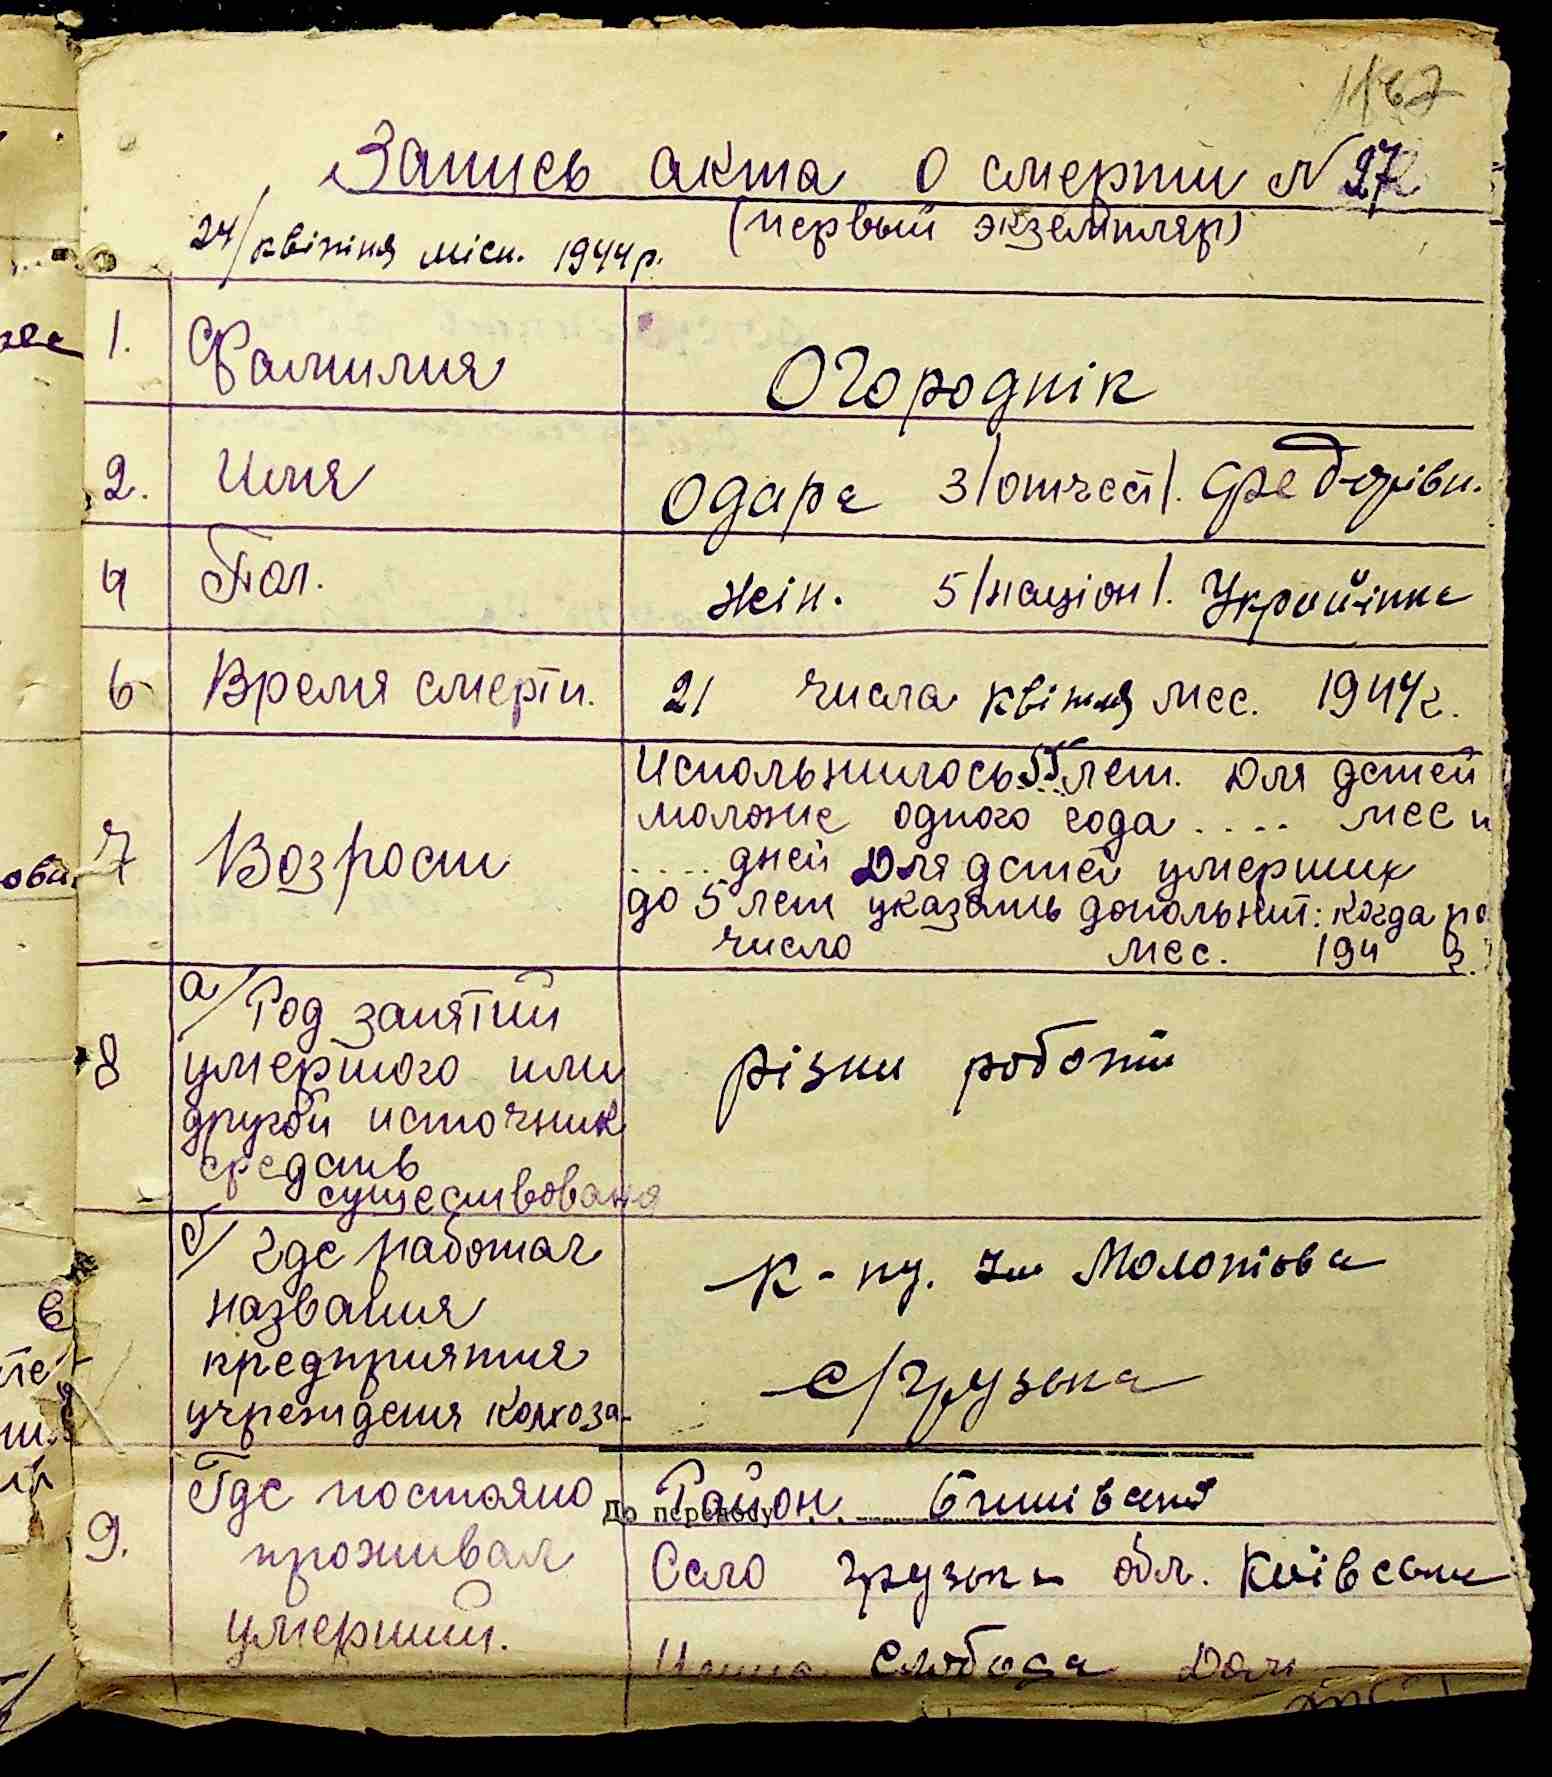 Запись акта о смерти N 27
(первый экземпляр)
24/квітня місц. 1944р.
1. Фамилия Огороднік
2. Имя Одаре 3/отчест/. Федорівн.
4 Пол. жін. 5/націон/. Украйінке
6 Время смерти. 21 числа квітня мес. 1944г.
7 Возраст
Испольнилось 55 лет. Для детей
моложе одного года .... мес и
.... дней Для детей умерших
до 5 лет указать допольнит: когда ро
число мес. 194 г.
8 а/ Род занятий
умершого или
другой источник
средств
существована
різни роботи
б/ где работал
названия
предприятия
учреждения колхоза-
к-пу. Ім Молотова
с/Грузька
9. Где постояно
проживал
умерший.
Район
До переносу
Село Грузька обл. Київська
Слобода Дом